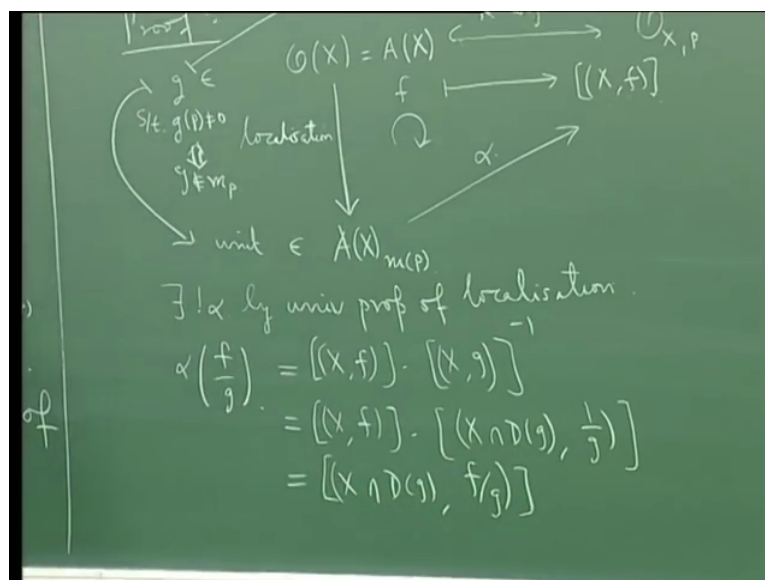 Proof:
O(X) = A(X) ⟷ O_{X,p}
g ∈
f ⟼ [(X,f)]
s/t. g(p)≠0
localisation
⇕
g ∉ m_p
α.
unit ∈ A(X)_{m(p)}
∃!α by univ prop of localisation.
α(f/g). = [(X,f)]. [(X,g)]^{-1}
of
= [(X,f)]. [(X∩D(g), 1/g)]
= [(X∩D(g), f/g)]